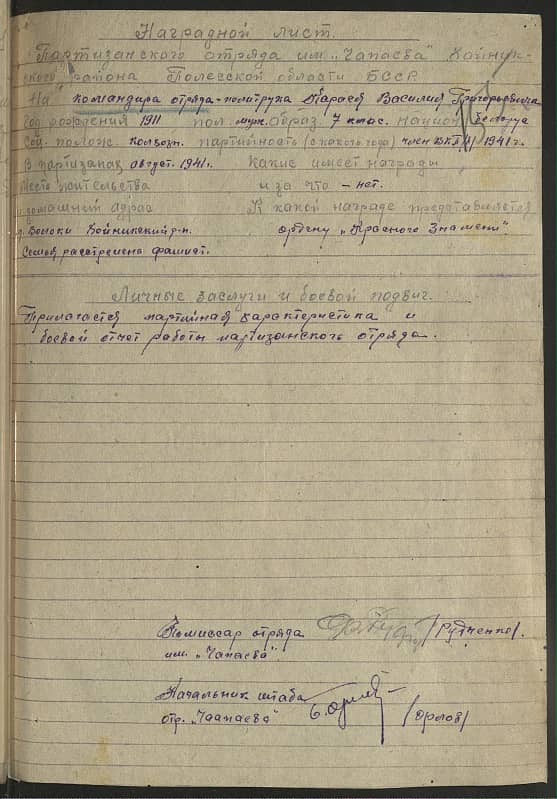 Наградной лист.
Партизанского отряда им. „Чапаева" Хойник-
ского района Полесской области БССР
На командира отряда-политрука Тарасев Василия Григорьевича
Год рождения 1911 пол муж. образ. 7 клас. национ белорус
Соц. полож. колхозн. партийность (с какого года) член ВКП/б/ 1941 г.
В партизанах август. 1941 г. Какие имеет награды
Место жительства и за что – нет.
и домашний адрес К какой награде представляется
д. Хойникский р-н. ордену „Красного Знамени".
Семья расстреляна фашист.
Личные заслуги и боевой подвиг.
Прилагается партийная характеристика и
боевой отчет работы партизанского отряда.
Комиссар отряда /Рудченко/.
им. „Чапаева"
Начальник штаба
отр. „Чапаева" /Орлов/